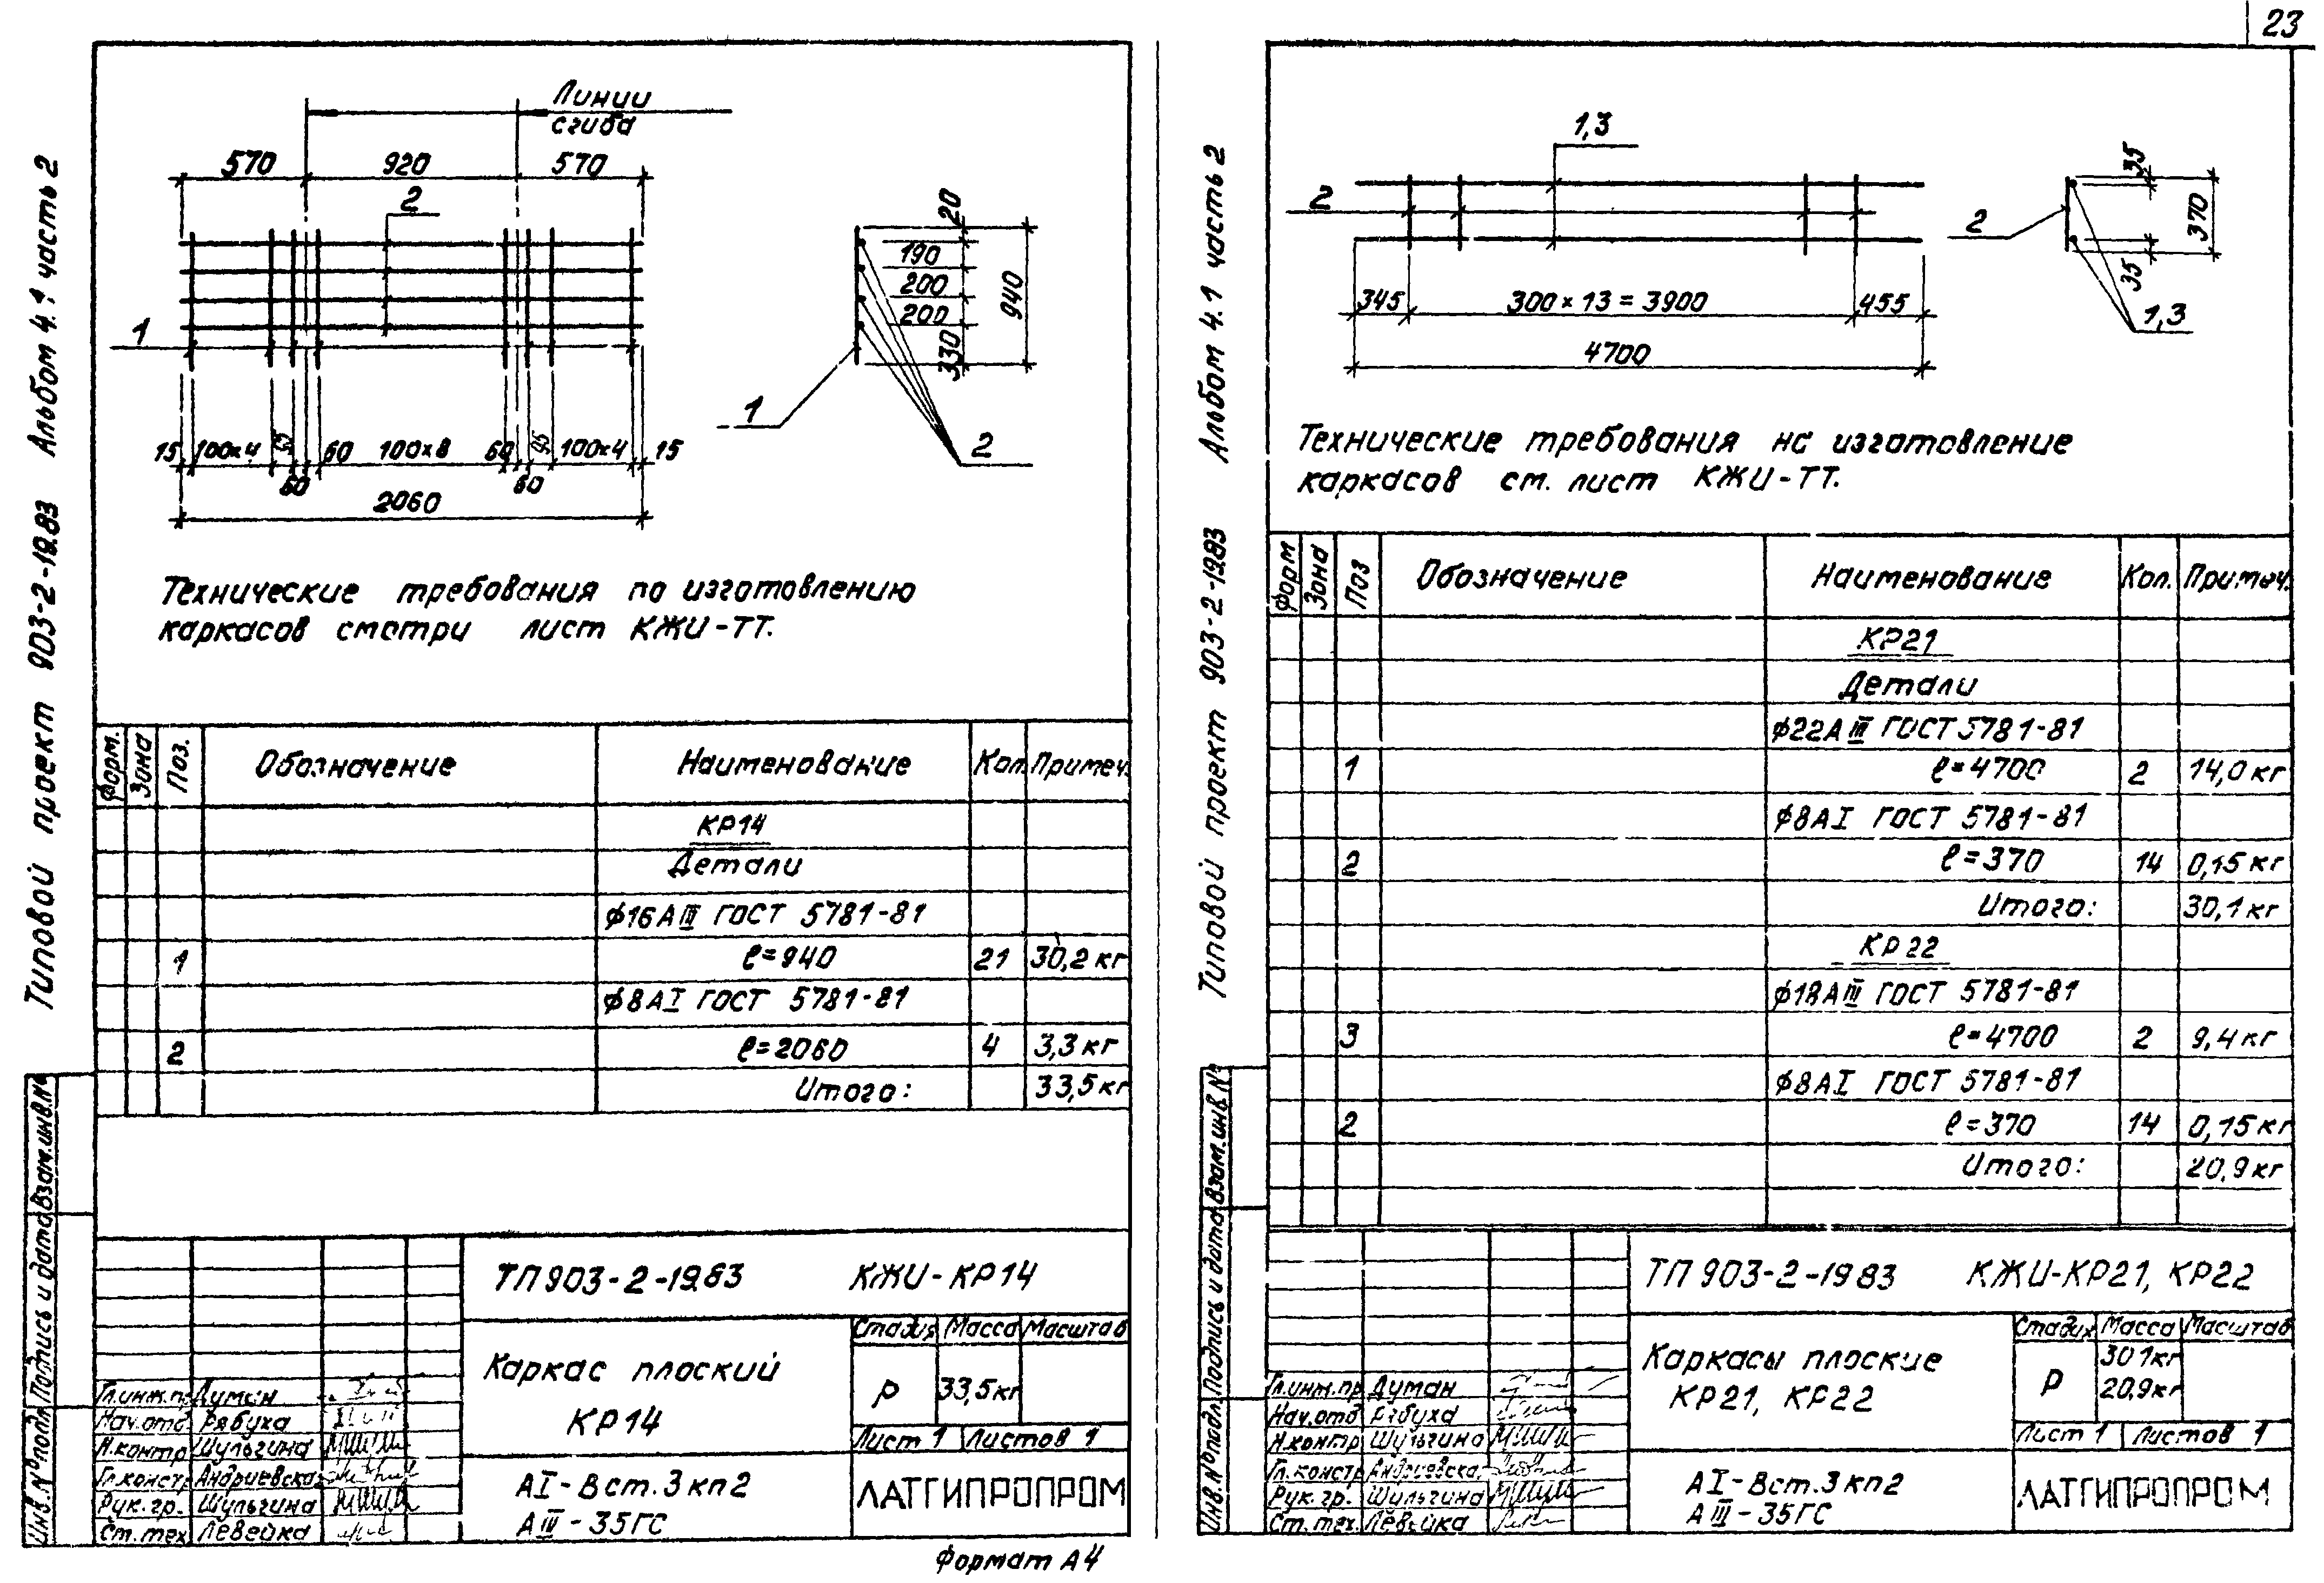 23
Типовой проект 903-2-19.83 Альбом 4.1 часть 2
Линии
сгиба
570 920 570
2
1
15 100×4 95 60 100×8 60 95 100×4 15
60 60
2060
20
190
200
200
330
940
1
2
Технические требования по изготовлению
каркасов смотри лист КЖИ-ТТ.
Форм. Зона Поз. Обозначение Наименование Кол. Примеч.
КР14
Детали
ϕ16АIII ГОСТ 5781-81
1 ℓ=940 21 30,2 кг
ϕ8АI ГОСТ 5781-81
2 ℓ=2060 4 3,3 кг
Итого: 33,5 кг
Инв.№подл. Подпись и дата Взам.инв.№
ТП 903-2-19.83 КЖИ-КР14
Каркас плоский
КР14
Стадия Масса Масштаб
Р 33,5кг
Лист 1 Листов 1
Гл.инж.пр Думан
Нач.отд Рябуха
Н.контр Шульгина
Гл.констр Андриевска
Рук.гр. Шульгина
Ст.тех Левейка
АI-Вст.3кп2
АIII-35ГС
ЛАТГИПРОПРОМ
Формат А4
Типовой проект 903-2-19.83 Альбом 4.1 часть 2
1,3
2
345 300×13=3900 455
4700
35
370
35
2
1,3
Технические требования на изготовление
каркасов см. лист КЖИ-ТТ.
Форм Зона Поз Обозначение Наименование Кол. Примеч.
КР21
Детали
ϕ22АIII ГОСТ 5781-81
1 ℓ=4700 2 14,0 кг
ϕ8АI ГОСТ 5781-81
2 ℓ=370 14 0,15 кг
Итого: 30,1 кг
КР22
ϕ18АIII ГОСТ 5781-81
3 ℓ=4700 2 9,4 кг
ϕ8АI ГОСТ 5781-81
2 ℓ=370 14 0,15 кг
Итого: 20,9 кг
Инв.№подл. Подпись и дата Взам.инв.№
ТП 903-2-1983 КЖИ-КР21, КР22
Каркасы плоские
КР21, КР22
Стадия Масса Масштаб
Р 30 1кг
20,9кг
Лист 1 Листов 1
Гл.инж.пр Думан
Нач.отд Рябуха
Н.контр Шульгина
Гл.констр Андриевска
Рук.гр. Шульгина
Ст.тех. Левейка
АI-Вст.3кп2
АIII-35ГС
ЛАТГИПРОПРОМ